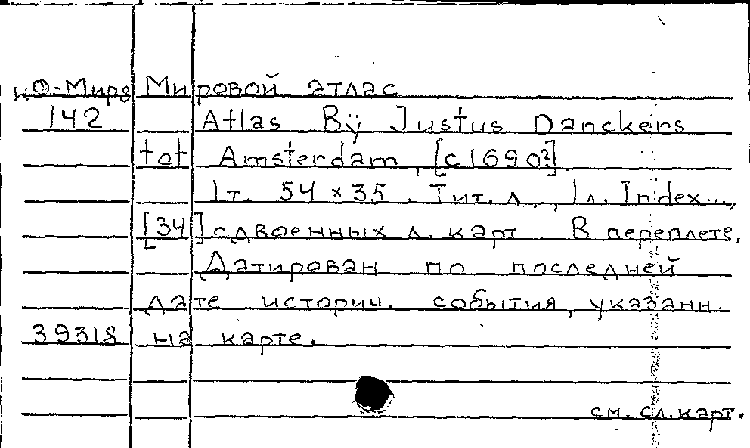 К.О-Мира Мировой атлас
142 Atlas Bÿ Justus Danckers
tot Amsterdam, [c1690?]
1т. 54 x 35. Тит. л., 1л. Index...,
[34] сдвоенных л. карт. В переплете.
Датирован по последней
дате историч. события, указанн.
39318 на карте.
см. сл. карт.